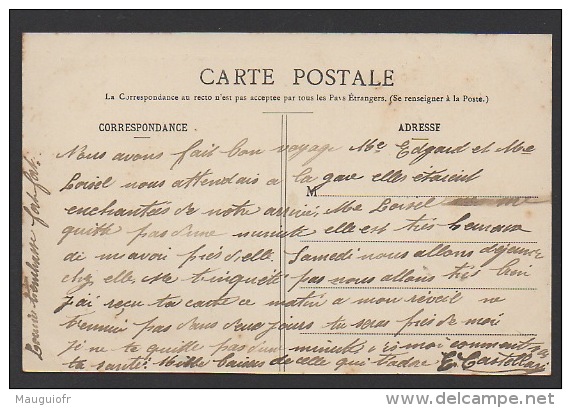 CARTE POSTALE
La Correspondance au recto n'est pas acceptée par tous les Pays Étrangers. (Se renseigner à la Poste.)
CORRESPONDANCE
ADRESSE
M
Nous avons fait bon voyage Me Edgard et Me
Loisel nous attendais a la gare elles étaient
enchantées de notre arrivée, Me Loisel me
quitte pas d'une minute elle est très heureuse
de m'avoir près d'elle. Samedi nous allons déjeuner
chez elle. Ne t'inquiète pas nous allons très bien
j'ai reçu ta carte ce matin a mon réveil ne
t'ennuie pas dans deux jours tu seras près de moi
je ne te quitte pas d'une minute, dis moi comment va
ta santé. Mille baisers de celle qui t'adore E.
Louise t'embrasse fort fort.
Mauguiofr
©delcampe.net